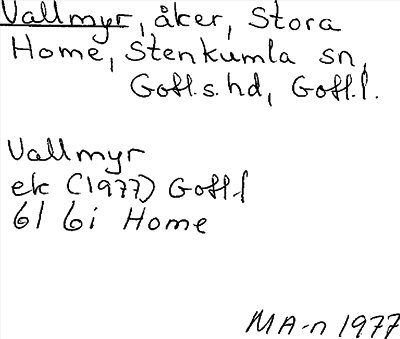 Vallmyr, åker, Stora
Home, Stenkumla sn,
Gotl.s.hd, Gotl.l.
Vallmyr
ek (1977) Gotl.l
6I 6i Home
MA-n 1977